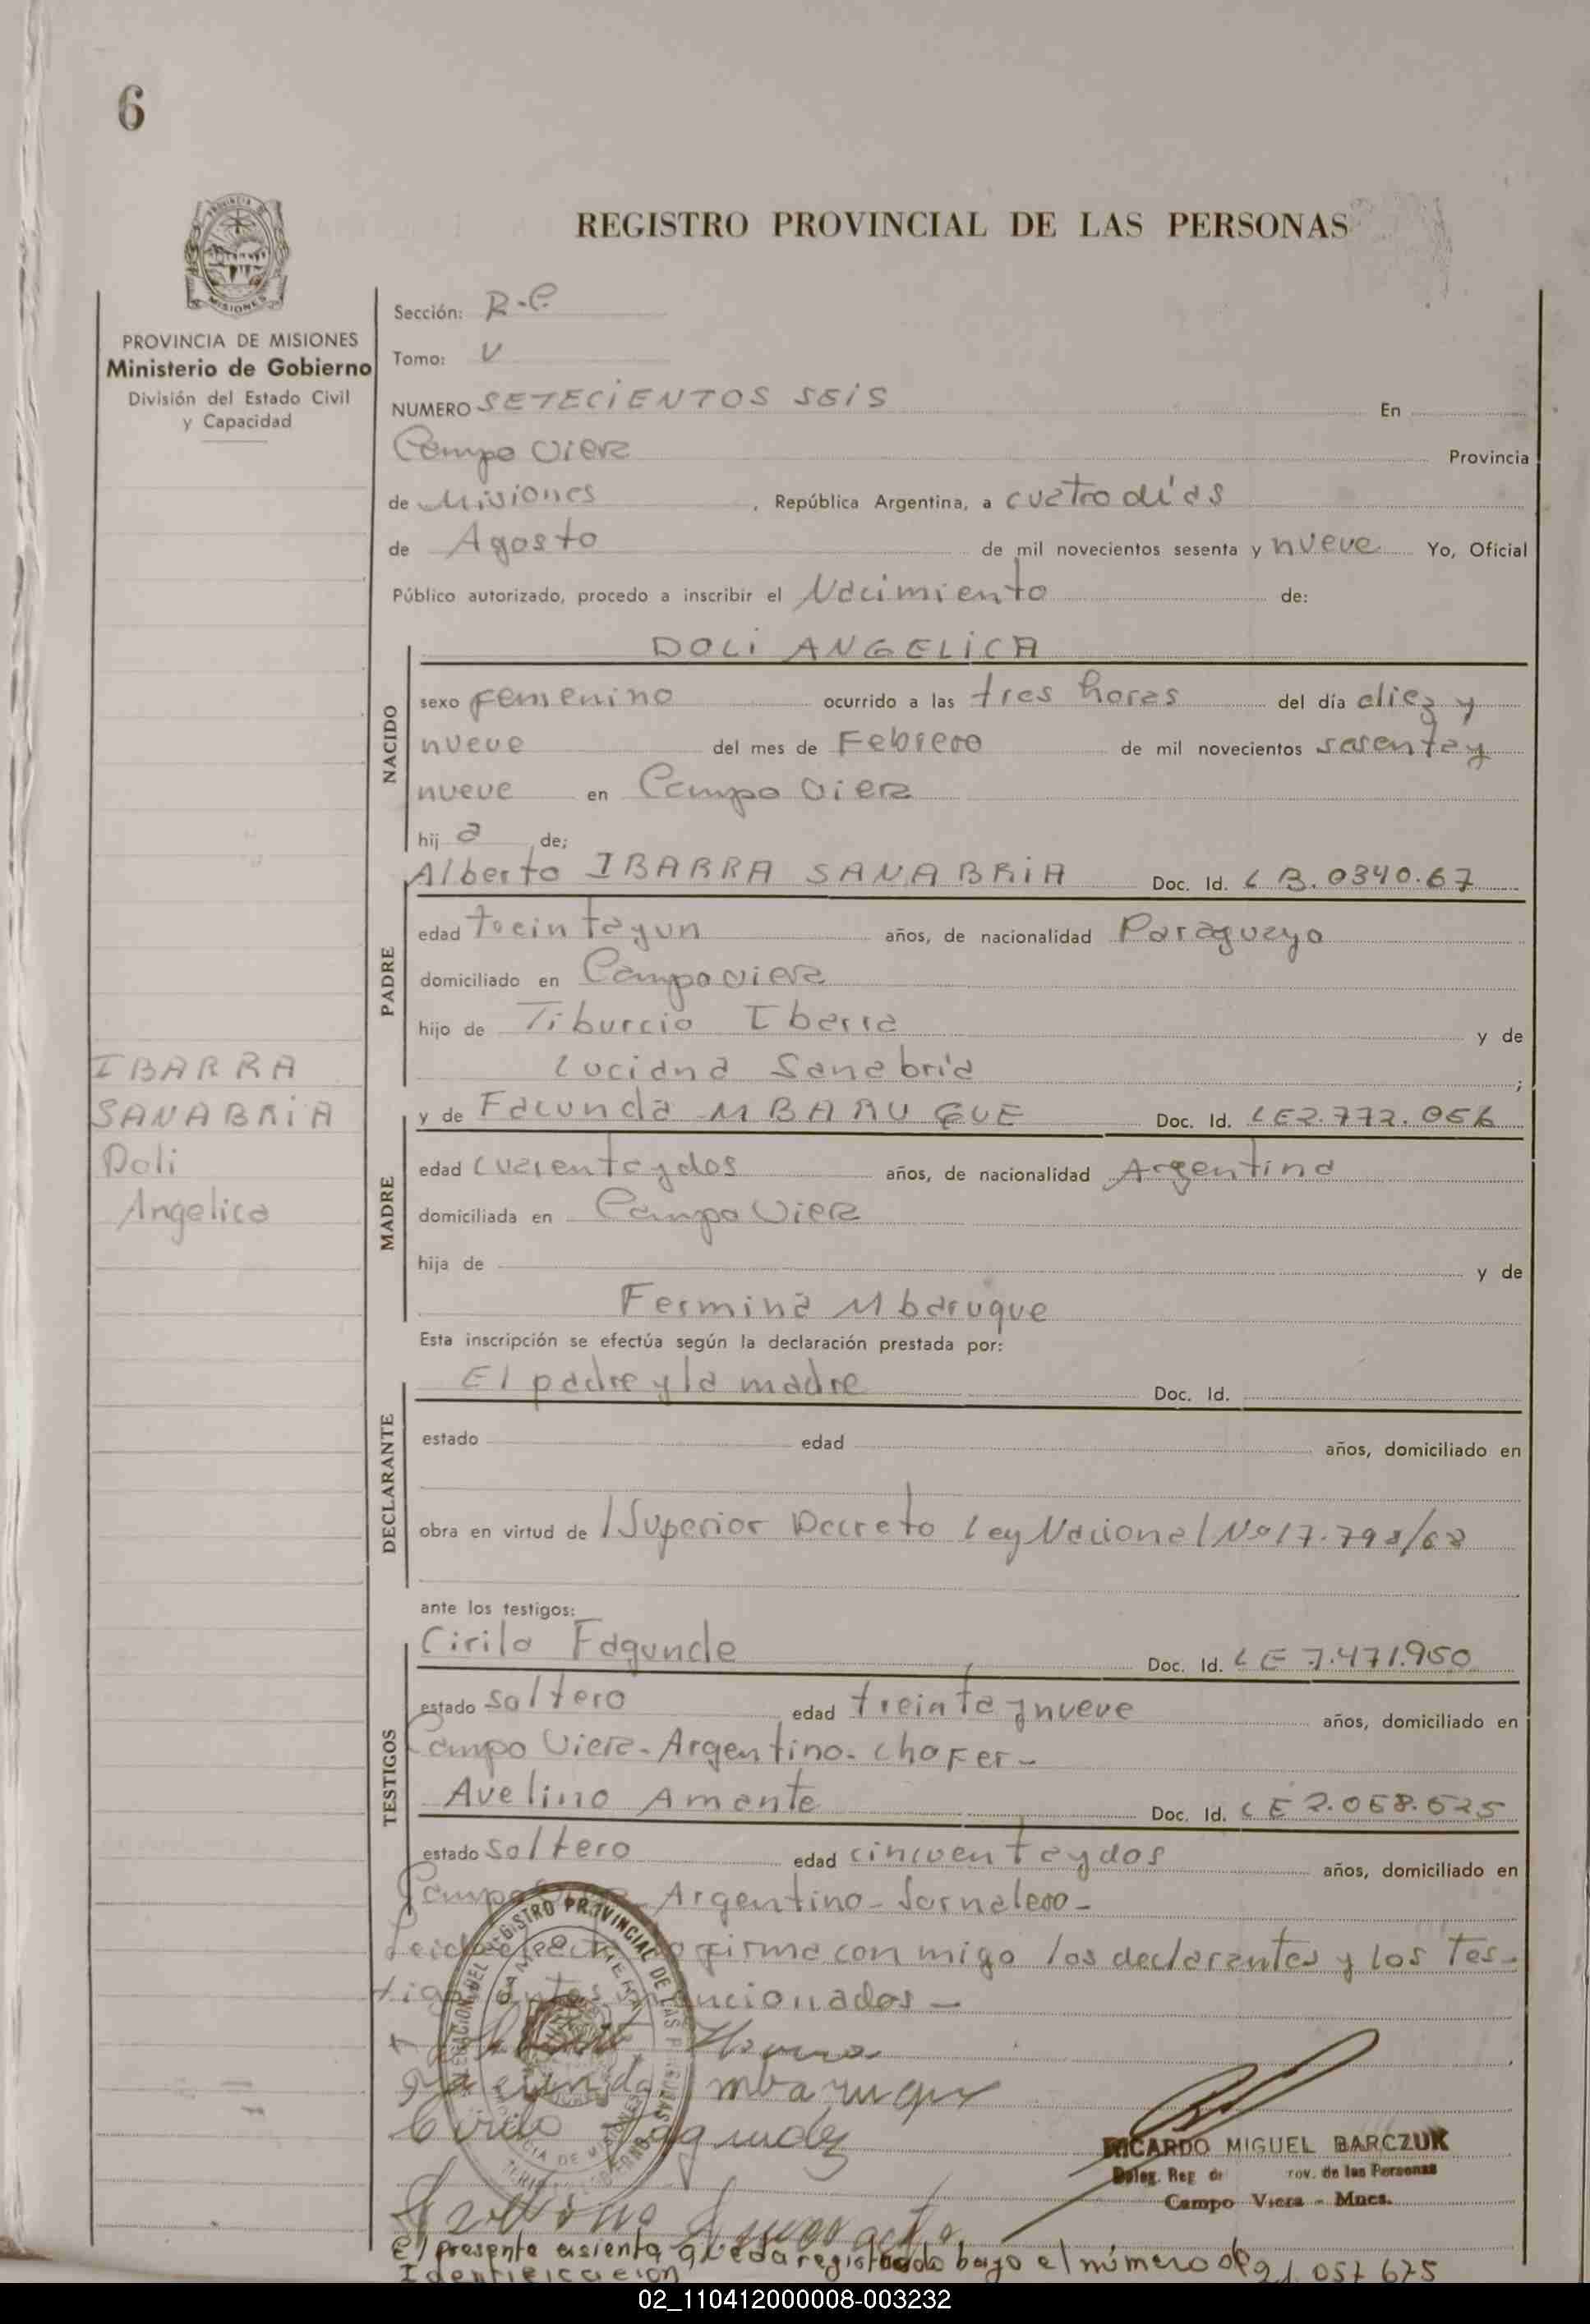 6
REGISTRO PROVINCIAL DE LAS PERSONAS
PROVINCIA DE MISIONES
Ministerio de Gobierno
División del Estado Civil
y Capacidad
IBARRA
SANABRIA
Doli
Angelica
Sección: R.C
Tomo: V
NUMERO SETECIENTOS SEIS En
Campo Viera Provincia
de Misiones, República Argentina, a cuatro días
de Agosto de mil novecientos sesenta y nueve Yo, Oficial
Público autorizado, procedo a inscribir el Nacimiento de:
NACIDO
DOLI ANGELICA
sexo Femenino ocurrido a las tres horas del día diez y
nueve del mes de Febrero de mil novecientos sesentay
nueve en Campo Viera
hij a de;
PADRE
Alberto IBARRA SANABRIA Doc. Id. L B. 0340.67
edad treintayun años, de nacionalidad Paraguayo
domiciliado en Campo Viera
hijo de Tiburcio Ibarra y de
Luciana Sanabria ;
MADRE
y de Facunda MBARUQUE Doc. Id. LE 2.772.056
edad cuarentaydos años, de nacionalidad Argentina
domiciliada en Campo Viera
hija de y de
Fermina Mbaruque
Esta inscripción se efectúa según la declaración prestada por:
DECLARANTE
El padre y la madre Doc. Id.
estado edad años, domiciliado en
obra en virtud de /Superior Decreto Ley Nacional Nº 17.798/68
ante los testigos:
TESTIGOS
Cirilo Fagunde Doc. Id. LE 7.471.950
estado soltero edad treinta y nueve años, domiciliado en
Campo Viera - Argentino - Chofer -
Avelino Amante Doc. Id. LE 2.068.525
estado soltero edad cincuentaydos años, domiciliado en
Campo Argentino - Jornalero -
Leida el acta firma con migo los declarantes y los Tes-
tigos antes mencionados -
Mbaruque
Cirilo Fagundez
RICARDO MIGUEL BARCZUK
Deleg. Reg. rov. de las Personas
Campo Viera - Mnes.
El presente asiento queda registrado bajo el número de
Identificacion 21.057.675
02_110412000008-003232